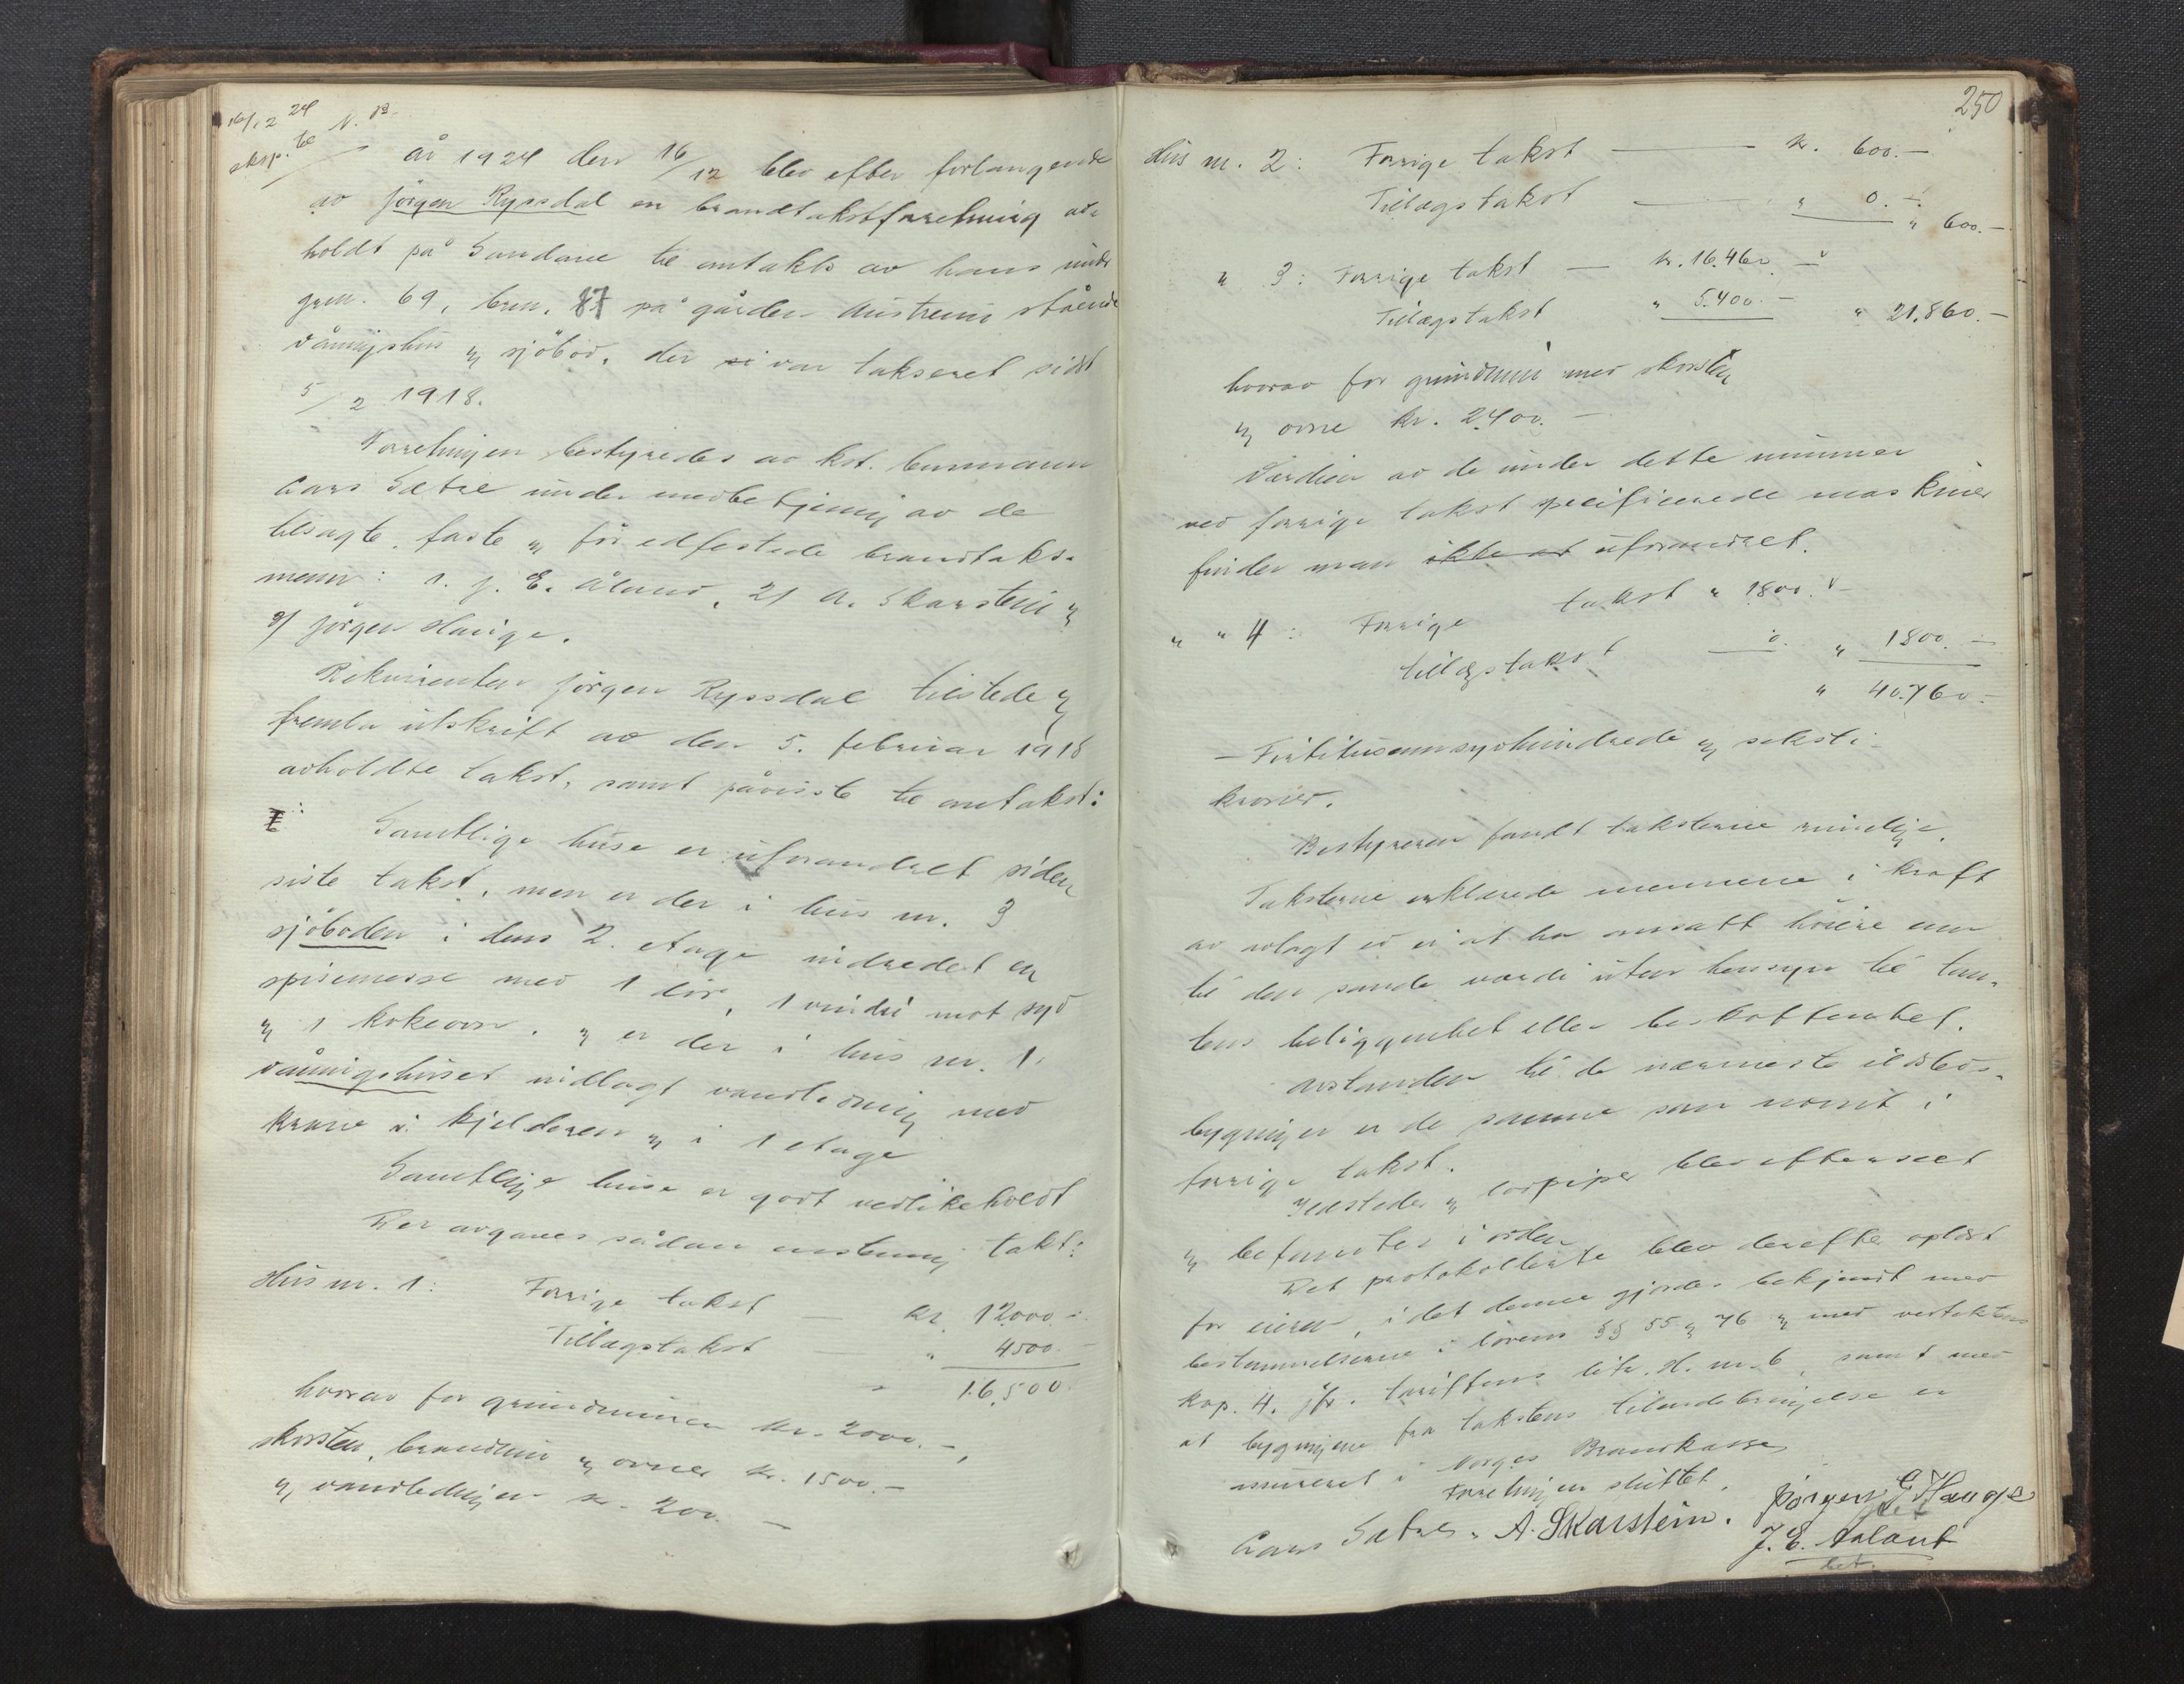 16/12 24
eksp. te N. B.
År 1924 den 16/12 blev efter forlangende
av Jörgen Ryssdal en brandtakstforretning av-
holdt på Sandane til omtakst av hans under
grnr. 69, brnr. 87 på gården Austreim stående
våningshus og sjöbod, der var takseret sidst
5/2 1918.
Forretningen bestyredes av kst. lensmann
Lars Sætre under medbetjening av de
tilsagte, faste og för edfestede brandtakst-
menn: 1. J. E. Åland, 2) A. Skarstein og
3) Jörgen Hauge.
Rekvirenten Jörgen Ryssdal tilstede og
fremla utskrift av den 5. februar 1918
avholdte takst, samt påviste til omtakst:
Samtlige huse er uforandret siden
siste takst, men er der i hus nr. 3
sjöboden i dens 2. etage indredet en
spisemesse med 1 dör, 1 vindu mot syd
og 1 kokeovn, og er der i hus nr. 1.
våningshuset indlagt vandledning med
krane i kjelderen og i 1 etage
Samtlige huse er godt vedlikeholdt
Der avgaves sådan enstemmig takst:
Hus nr. 1: Forrige takst — kr. 12000.-
Tillægstakst " 4500.-
" 16,500.
hvorav for grundmuren kr. 2000.-,
skorsten, brandmur og ovner kr. 1500.-
og vandledningen kr. 200.—
250
Hus nr. 2: Forrige takst — kr. 600.—
Tillægstakst — " 0.- " 600.-
" 3: Forrige takst — kr. 16.460.-
Tillægstakst " 5.400.- " 21.860.-
hvorav for grundmur med skorsten
og ovne kr. 2400.-
Værdien av de under dette nummer
ved forrige takst specificerede maskiner
finder man ikke at uforandret.
" " 4: Forrige takst " 1800.-
tillægstakst 0. " 1800.-
" 40.760.-
- Firtitusensyvhundrede og seksti-
kroner.
Bestyreren fandt taksterne rimelige.
Taksterne erklærede mennene i kraft
av avlagt ed ei at ha ansatt höiere enn
til den sande værdi uten hensyn til tom-
tens beliggenhet eller beskaffenhet.
Avstanden til de nærmeste ildsteds-
bygninger er de samme som nævnt i
forrige takst.
Ildsteder og lovpiper blev efterseet
og befandtes i orden
Det protokollerte blev derefter oplæst
for eieren, idet denne gjordes bekjendt med
bestemmelserne i lovens §§ 55 og 76 og med vedtektens
kap. 4. jfr. tariffens litr. H. nr. 6, samt med
at bygningene fra takstens tilendebringelse er
assureret i Norges Brandkasse
Forretningen sluttet.
Lars Sætre. A. Skarstein. Jörgen E Hauge
J. E. Aaland